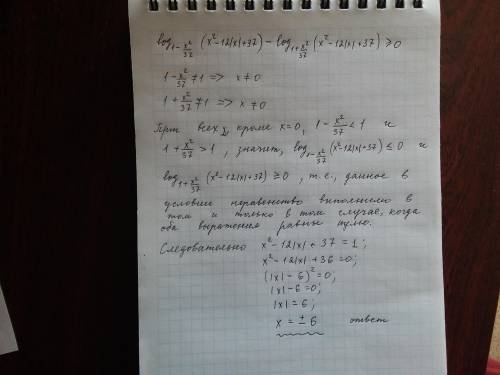 log_{1-x²/37} (x²-12|x|+37) - log_{1+x²/37} (x²-12|x|+37) ≥ 0
1 - x²/37 ≠ 1 => x ≠ 0
1 + x²/37 ≠ 1 => x ≠ 0
При всех x, кроме x=0, 1 - x²/37 < 1 и
1 + x²/37 > 1, значит, log_{1-x²/37} (x²-12|x|+37) ≤ 0 и
log_{1+x²/37} (x²-12|x|+37) ≥ 0, т.е., данное в
условие неравенство выполнено в
том и только в том случае, когда
оба выражения равны нулю.
Следовательно x²-12|x|+37=1;
x²-12|x|+36=0;
(|x|-6)²=0;
|x|-6=0;
|x|=6;
x=±6 ответ